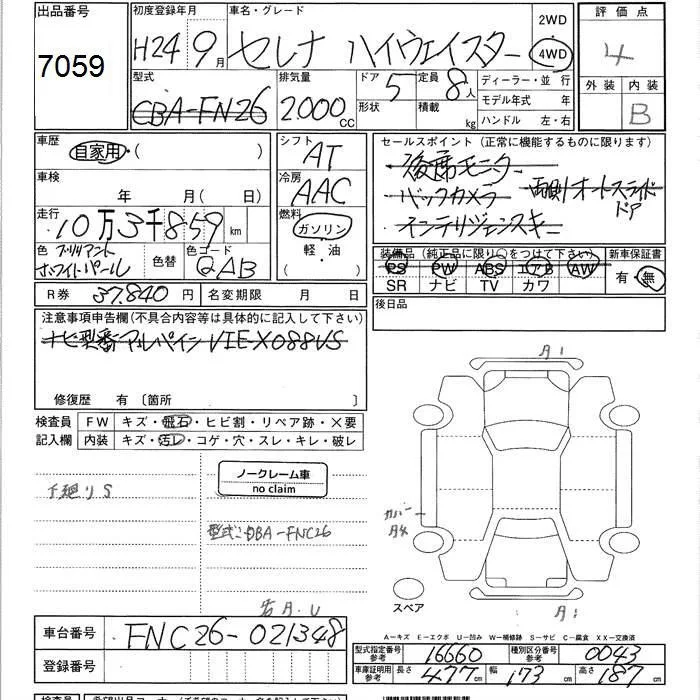 出品番号 初度登録年月 車名・グレード 2WD 評価点
7059 H24 9月 セレナ ハイウェイスター 4WD 4
型式 排気量 ドア 定員 ディーラー・並行 外装 内装
CBA-FN26 2000CC 5 8人 モデル年式 年 B
形状 積載 kg ハンドル 左・右
車歴 シフト セールスポイント (正常に機能するものに限ります)
自家用・( ) AT 後席モニター
車検 冷房 バックカメラ 両側オートスライドドア
年 月( 日) AAC インテリジェンスキー
走行 燃料
10万3千859km ガソリン
色 ブリリアントホワイトパール 色替 色コード QAB 軽・油
装備品 (純正品に限り○をつけて下さい) 新車保証書
PS PW ABS エアB AW 有・無
SR ナビ TV カワ
R券 37.840円 名変期限 月 日 後日品
注意事項申告欄(不具合内容等は具体的に記入して下さい)
ナビ型番 アルパイン VIE-X088VS
修復歴 有 〔箇所 〕
検査員 FW キズ・飛石・ヒビ割・リペア跡・×要
記入欄 内装 キズ・汚レ・コゲ・穴・スレ・キレ・破レ
ノークレーム車
no claim
下廻りS
型式:DBA-FNC26
カバー
スペア
A-キズ E-エクボ U-凹み W-補修跡 S-サビ C-腐食 XX-交換済
車台番号 FNC26-021348
登録番号
型式指定番号 参考 16660 種別区分番号 参考 0043
車庫証明用 参考 長さ 477cm 幅 173cm 高さ 187cm